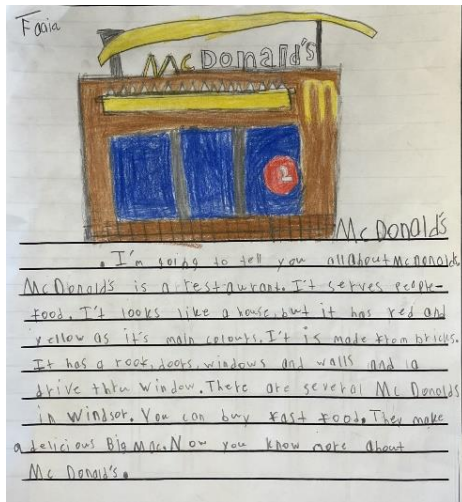 Faaia
McDonald's
M
2
McDonald's
. I'm going to tell you all about McDonalds
McDonald's is a restaurant. I't serves people
food. I't looks like a house, but it has red and
yellow as it's main colours. I't is made from bricks.
It has a roof, doors, windows and walls and a
drive thru window. There are several Mc Donalds
in Windsor. You can buy fast food. They make
a delicious Big Mac. Now you know more about
Mc Donald's.